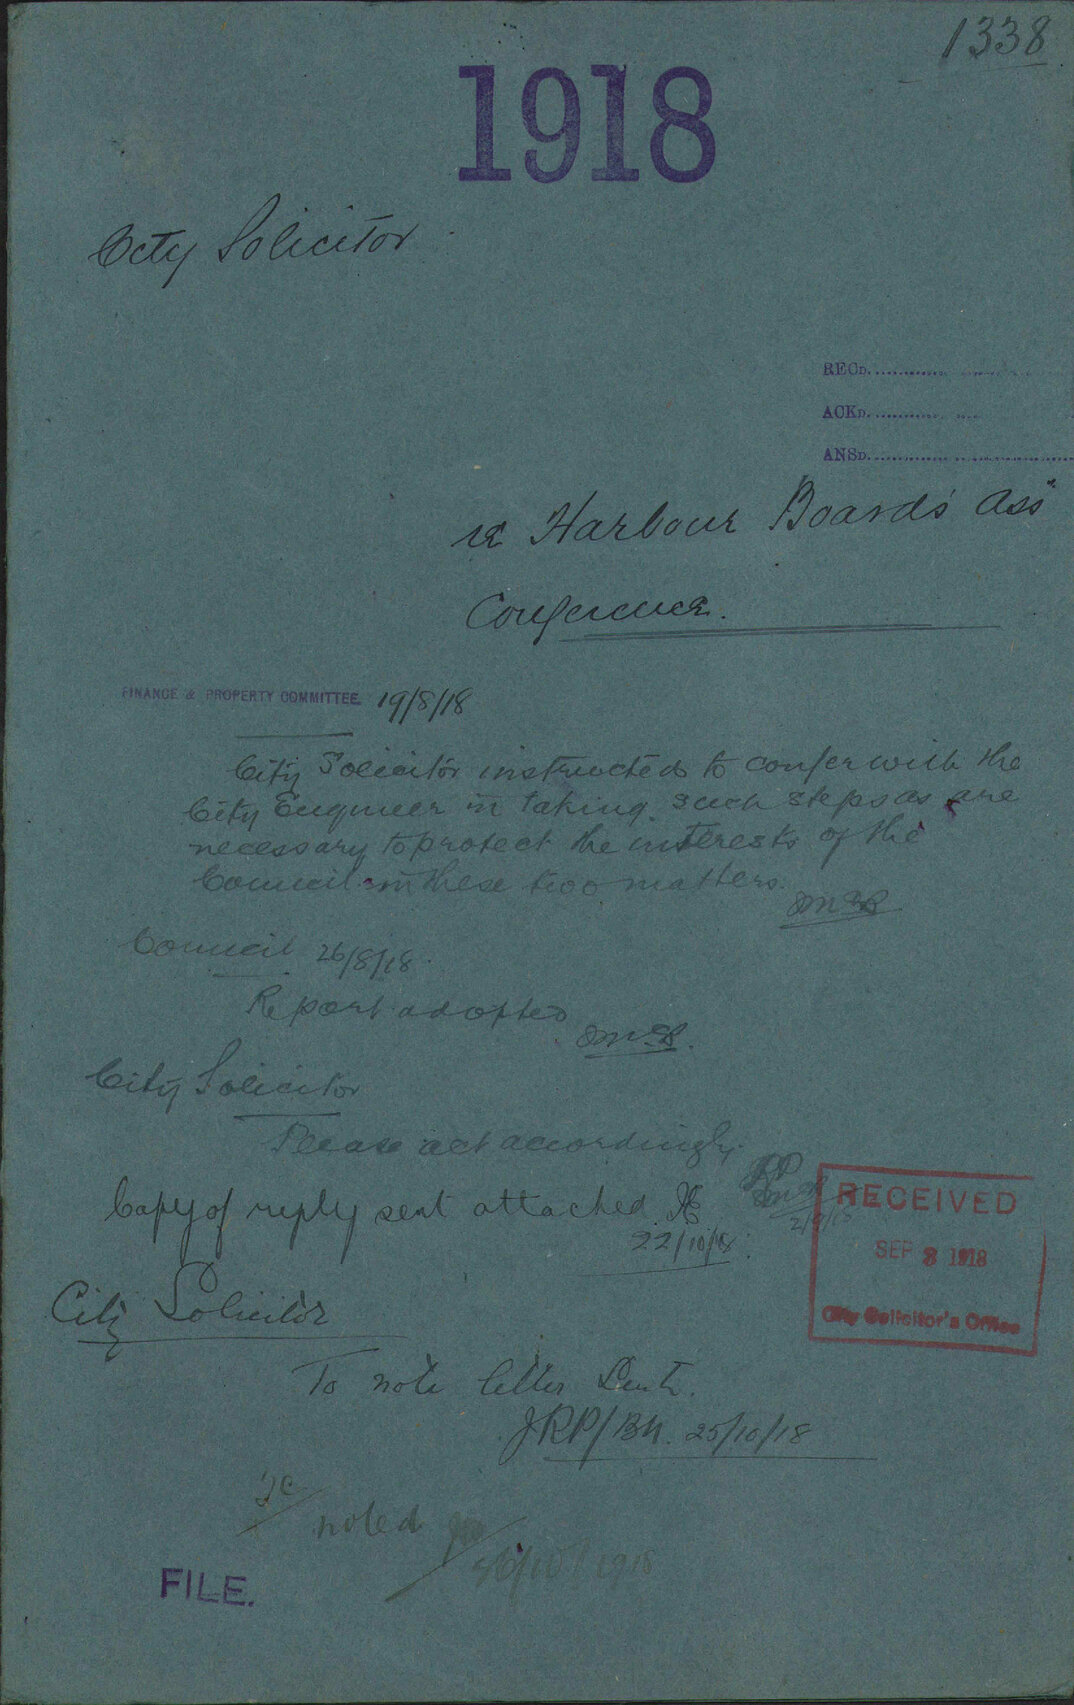 1338
1918
City Solicitor
RECD.
ACKD.
ANSD.
re Harbour Boards' Assn
Conference.
FINANCE & PROPERTY COMMITTEE. 19/8/18
City Solicitor instructed to confer with the
City Engineer in taking such steps as are
necessary to protect the interests of the
Council in these two matters.
Council 26/8/18.
Report adopted
City Solicitor
Please act accordingly.
2/9/18
RECEIVED
SEP 3 1918
City Solicitor's Office
Copy of reply sent attached
22/10/18.
City Solicitor
To note letter sent.
JRP/BH. 25/10/18
noted
/10/1918
FILE.